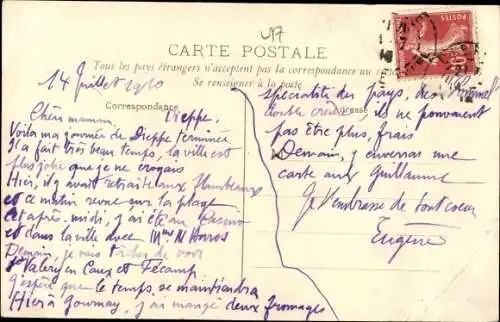 47
CARTE POSTALE
Tous les pays étrangers n'acceptent pas la correspondance au
Se renseigner à la poste
Correspondance
Adresse
POSTES
14 Juillet 1910
Dieppe.
Chère maman,
Voilà ma journée de Dieppe terminée
Il a fait très beau temps, la ville est
plus jolie que je ne croyais
Hier, il y avait retraite aux flambeaux
et ce matin revue sur la plage
Cet après-midi, j'ai été au
et dans la ville avec Mme
Demain, je vais tâcher de voir
St Valery en Caux et Fécamp.
J'espère que le temps se maintiendra
Hier à Gournay, j'ai mangé deux fromages
spécialités du pays, des
double crème, ils ne pouvaient
pas être plus frais
Demain, j'enverrai une
carte aux Guillaume
Je t'embrasse de tout coeur
Eugène